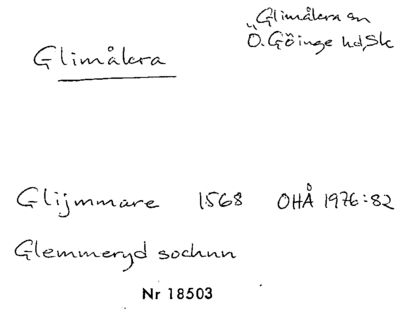 Glimåkra sn
Ö. Göinge hd, Sk
Glimåkra
Glijmmare 1568 OHÅ 1976:82
Glemmeryd sochnn
Nr 18503